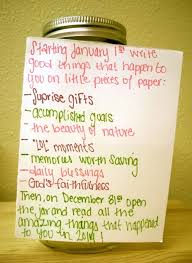 Starting January 1st write
good things that happen to
you on little pieces of paper:
- Suprise gifts
- acomplished goals
- the beauty of nature
- "LOL" moments
- memories worth saving
- daily blessings
- God's faithfulness
Then, on December 31st open
the jar and read all the
amazing things that happened
to you in 2014!